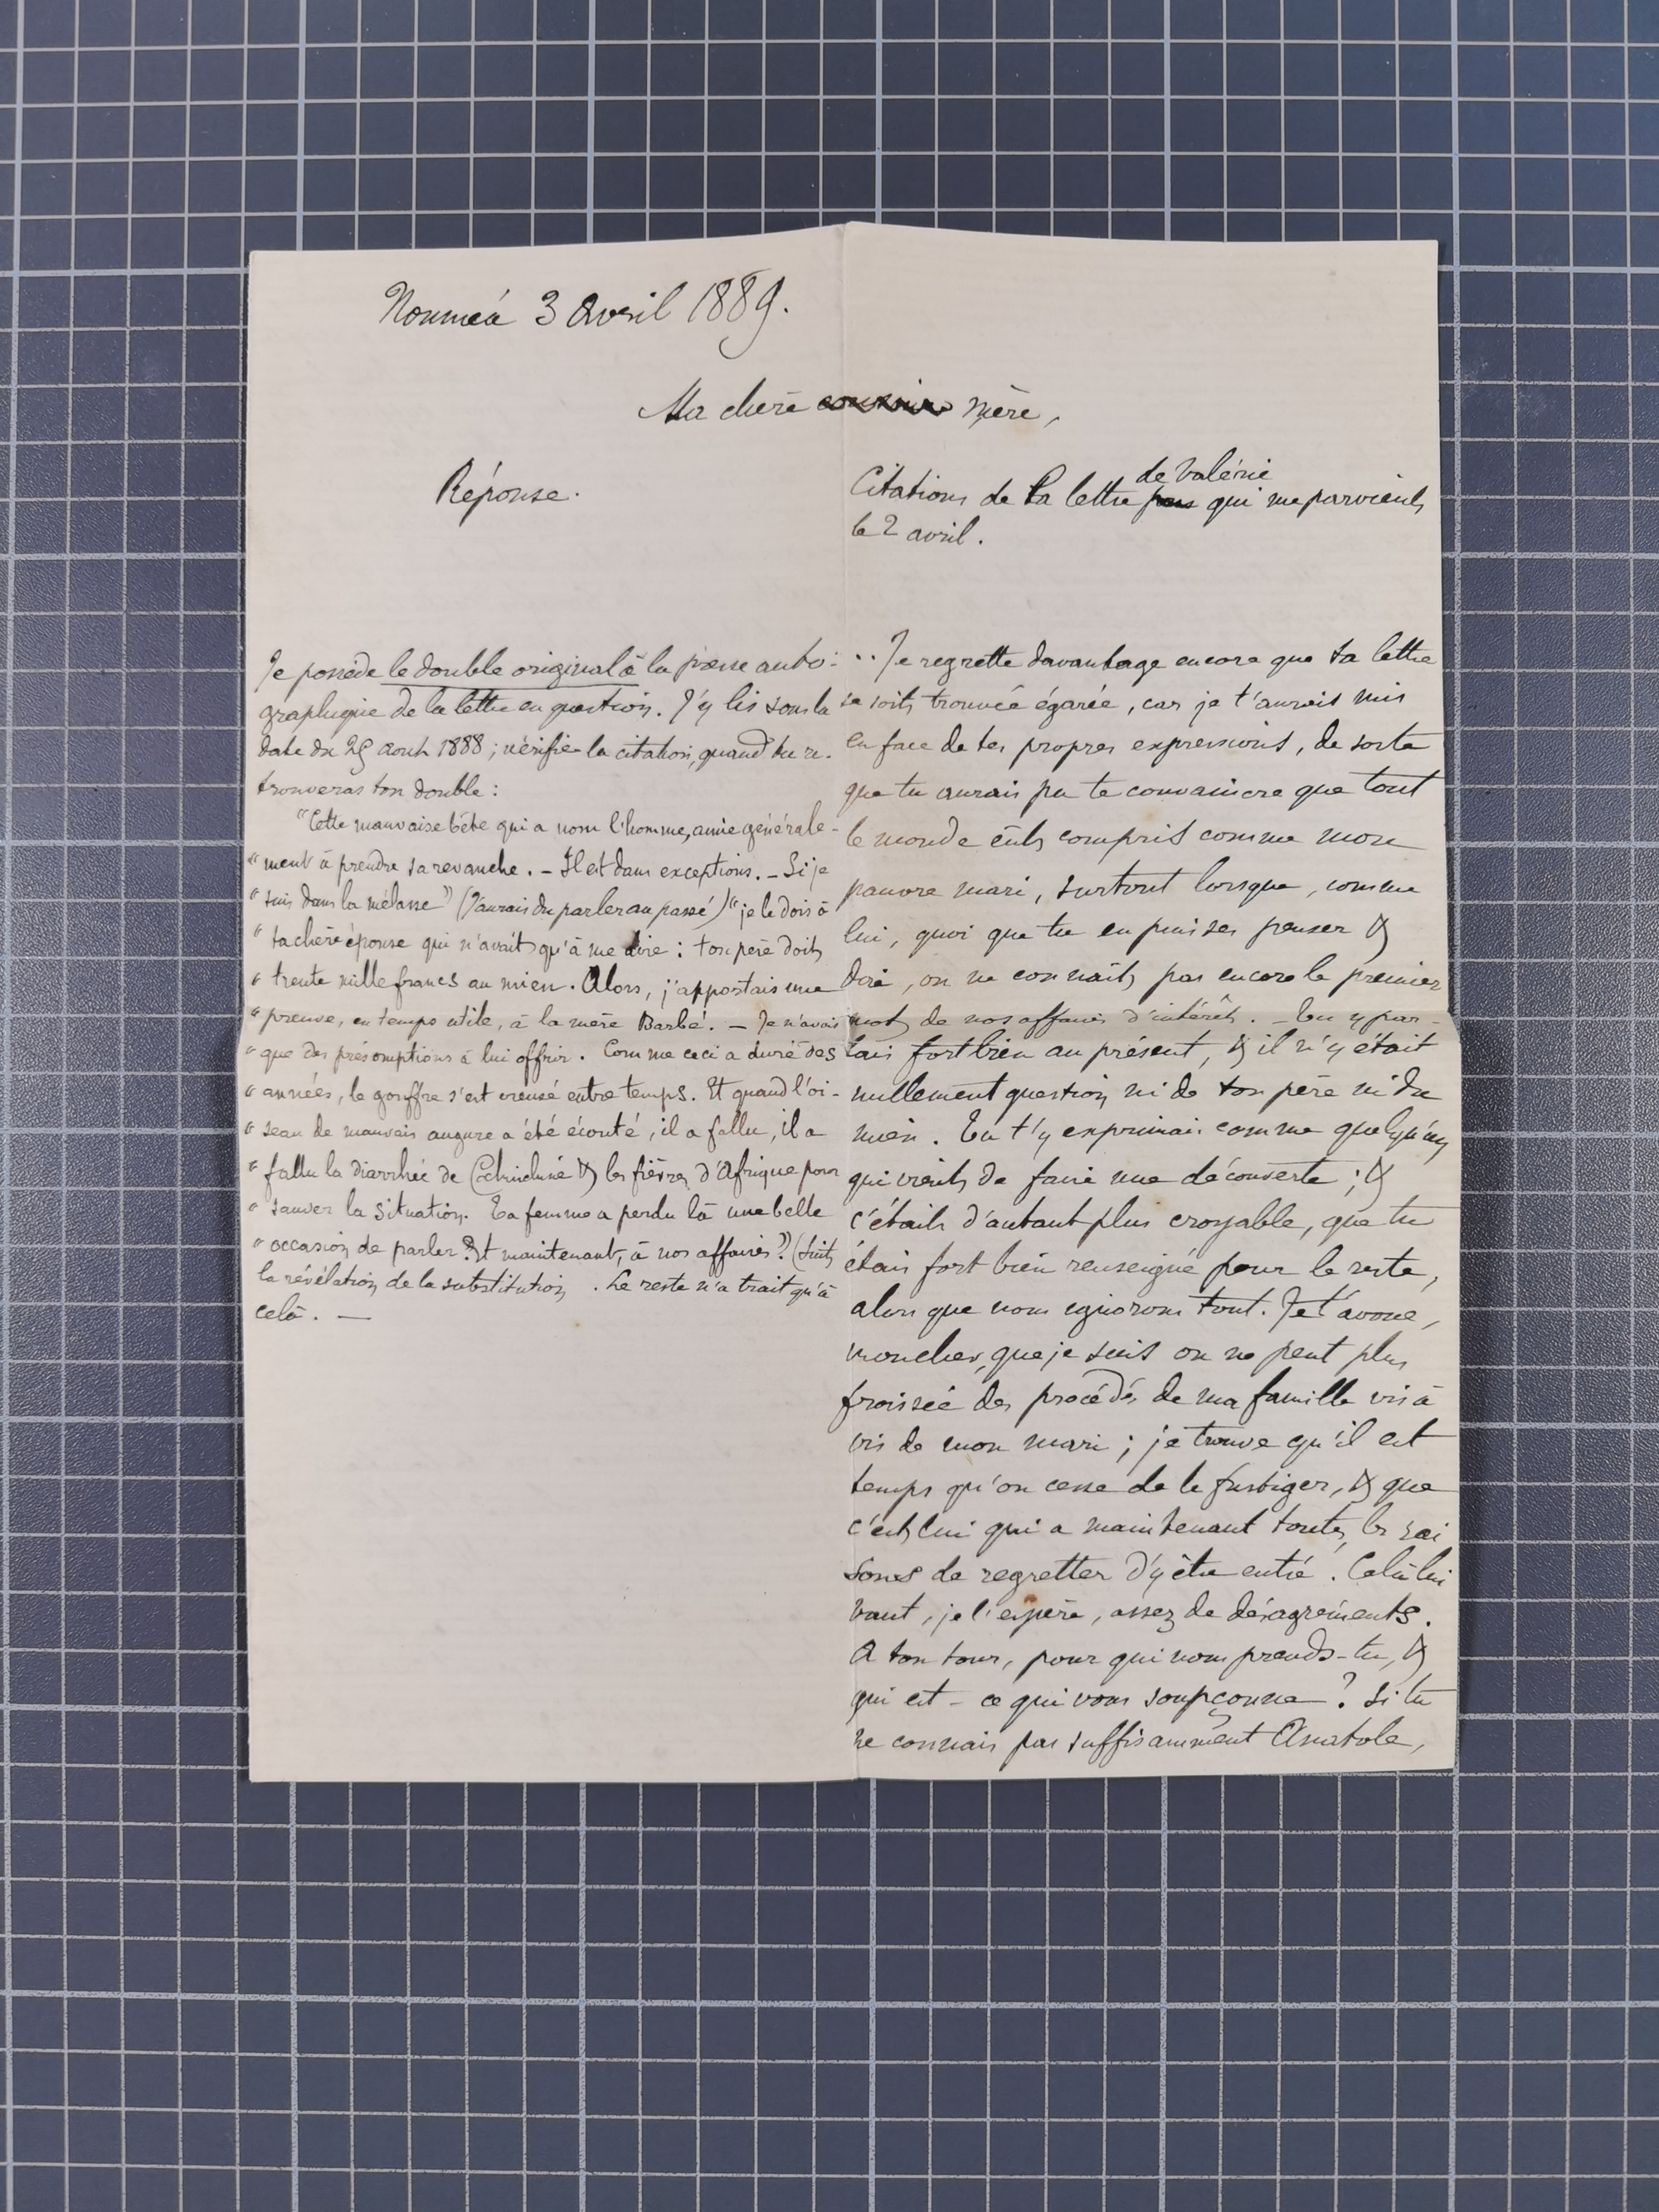 Nouméa 3 Avril 1889.
Ma chère cousine mère,
Réponse.
Je possède le double original à la presse auto-
graphique de la lettre en question. J'y lis sous la
date du 25 août 1888 ; vérifie la citation, quand tu re-
trouveras ton double :
"Cette mauvaise bête qui a nom l'homme, aime générale-
" ment à prendre sa revanche. – Il est dans exceptions. – Si je
" suis dans la mélasse" (J'aurais du parler au passé) "je le dois à
" ta chère épouse qui n'avait qu'à me dire : ton père doit
" trente mille francs au mien. Alors, j'apportais une
" preuve, en temps utile, à la mère Barbé. – Je n'avais
" que des présomptions à lui offrir. Comme ceci a duré des
" années, le gouffre s'est creusé entre temps. Et quand l'oi-
" seau de mauvais augure a été écouté, il a fallu, il a
" fallu la diarrhée de Cochinchine & les fièvres d'Afrique pour
" sauver la situation. Ta femme a perdu là une belle
" occasion de parler. Et maintenant, à nos affaires" (suit
la révélation de la substitution . Le reste n'a trait qu'à
celà. —
de Valérie
Citations de la lettre qui me parvient
le 2 avril.
.. Je regrette davantage encore que ta lettre
se soit trouvée égarée, car je t'aurais mis
en face de tes propres expressions, de sorte
que tu aurais pu te convaincre que tout
le monde eût compris comme mon
pauvre mari, surtout lorsque, comme
lui, quoi que tu en puisses penser &
dire, on ne connaît pas encore le premier
mot de nos affaires d'intérêt. – Tu y par-
lais fort bien au présent, & il n'y était
nullement question ni de ton père ni du
mien. Tu t'y exprimais comme quelqu'un
qui vient de faire une découverte ; &
c'était d'autant plus croyable, que tu
étais fort bien renseigné pour le reste,
alors que nous ignorons tout. Je t'avoue,
mon cher, que je suis on ne peut plus
froissée des procédés de ma famille vis à
vis de mon mari ; je trouve qu'il est
temps qu'on cesse de le fustiger, & que
c'est lui qui a maintenant toutes les rai
sons de regretter d'y être entré. Celà lui
vaut, je l'espère, assez de désagréments.
A ton tour, pour qui nous prends-tu, &
qui est-ce qui vous soupçonne ? Si tu
ne connais pas suffisamment Anatole,